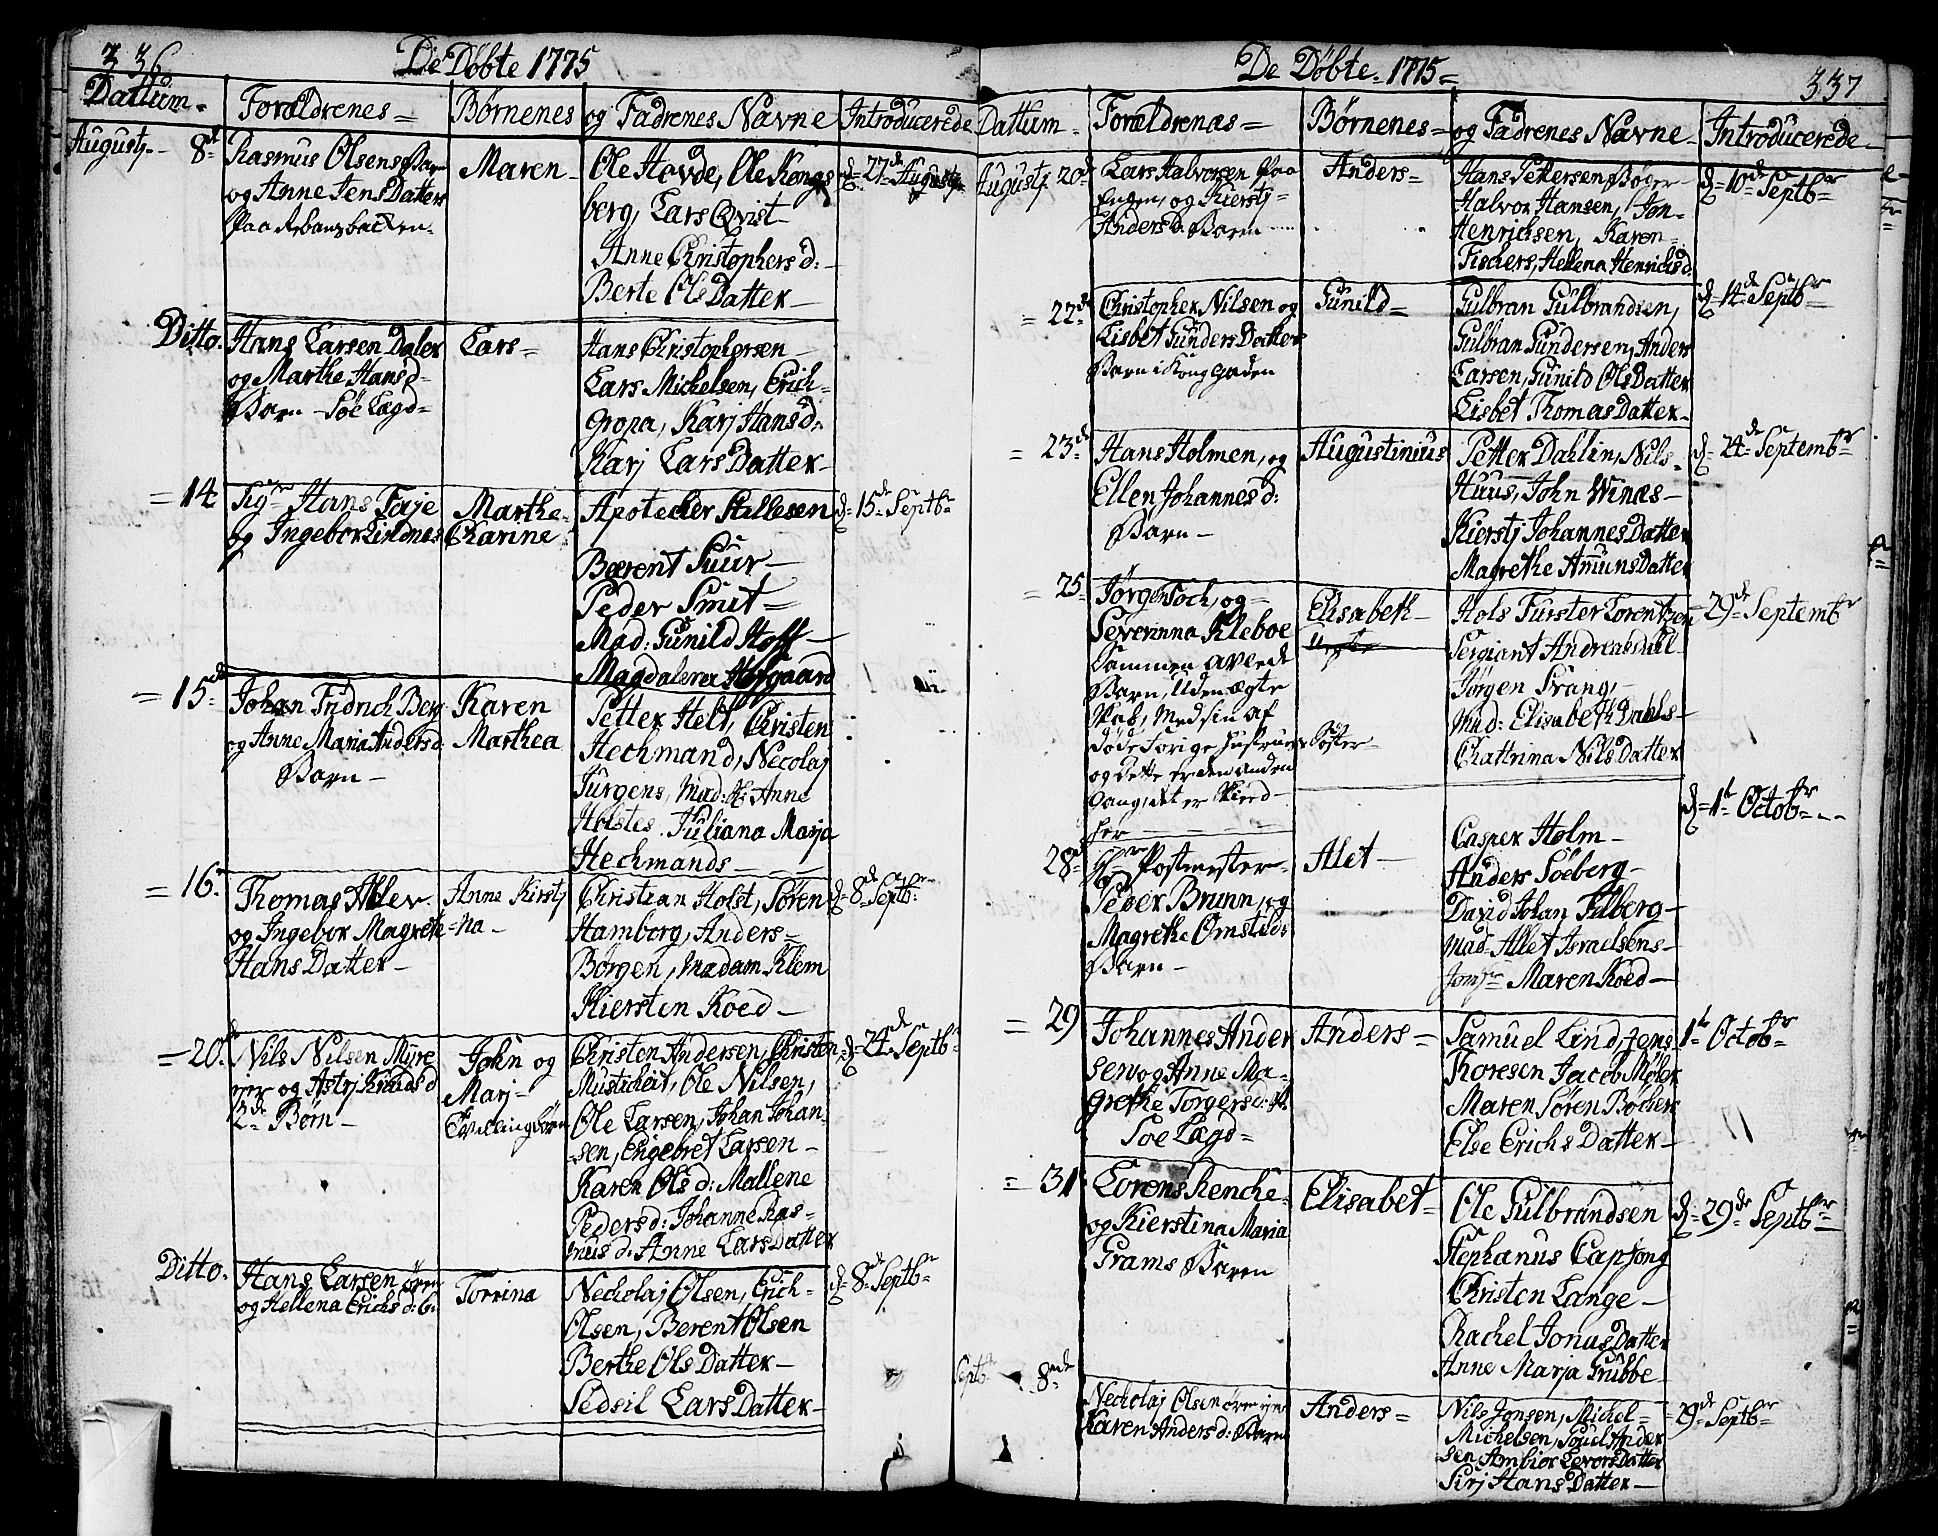 336
De Døbte 1775
Dattum
Forældrenes =
Børnenes
og Fadrenes Navne
Introducerede
Augustj 8de
Rasmus Olsens Barn
og Anne Jens Datters
paa
Maren
Ole Hovde, Ole Kongs
berg, Lars Qvist
Anne Christophers d:
Berte Ols Datter
d 27de Augustj
Ditto.
Hans Larsen Daler
og Marthe Hans d
Barn - Søe Lægd =
Lars =
Hans Christophersen
Lars Michelsen, Erich
Gropa, Karj Hans d
Karj Lars Datter
= 14
Sigr Hans Faje
og Ingebor Lindnes
Marthe
Charine
Apotecher Hillesen
Bærent Suur
Peder Smit =
Mad: Gunild Hoff
Magdalena
d 15de Septbr
= 15de
Johan Fridrich Berg
og Anne Maria Anders d.
Barn
Karen
Marthea
Petter Helt, Christen
Hechmand, Necolaj
Jürgens, Mad: Anne
Holstes. Juliana Marja
Hechmands
= 16.
Thomas
og Ingebor Magrete
Hans Datter
Anne Kierstj
=na
Christian Holst, Søren
Hamborg, Anders =
Børgen, Madam Klem
Kiersten Koed
d 8de Septbr
= 20de
Nils Nilsen Myre
og Astrj Knuds d
2de Børn
John og
Marj
Tvillingbørn
Christen Andersen, Christen
Ole Nilsen,
Ole Larsen, Johan Johan
sen, Engebret Larsen
Karen Ols d: Mallene
Peders d: Johanne Ras=
mus d. Anne Lars Datter
d 24de Septbr
Ditto.
Hans Larsen ører
og Hellena Erichs d: b.
Torrina
Necholaj Olsen, Erich
Olsen, Berent Olsen
Berthe Ols Datter
Sedsil Lars Datter
d 8de Septbr
De Døbte = 1775 =
337
Dattum
Forældrenas =
Børnenes =
og Fadrenes Navne
Introducerede
Augustj 20de
Lars Halvorsen paa
Engen, og Kierstj
Anders d: Barn
Anders =
Hans Pettersen
Halvor Hansen, Jon
Henrichsen, Karen
Fischers, Hellena Henrichs d
d 10de Septbr
= 22de
Christopher Nilsen og
Lisbet Gunders Datters
Barn i Kong gaden
Gunild =
Gulbran Gulbrandsen,
Gulbran Gundersen, Anders
Larsen, Gunild Ols Datter
Lisbet Thomas Datter
d 14de Septbr
= 23de
Hans Holmen, og
Ellen Johannes d:
Barn
Augustinius
Petter Dahlin, Nils
Huus, John Winas
Kierstj Johannes Datter
Magrethe Amuns Datter
d 24de Septembr
= 25
Jørgen Foch, og
Severinna Kleboe
Sammen avlede
Barn, Uden ægte
skab, med sin af
døde forige Hustrues Søster
og dette er den anden
Gang, det er skied
her
Elisabeth
Hols Furster Lorentzen
Sergiant Andreas
Jørgen Prang,
Mad: Elisabeth Dahls
Chattrina Nils Datter
29de Septembr
28de
Hr Postmester
Peder Brunn, og
Magrethe Omsteds
Barn
Alet
Casper Holm
Anders Søeberg
David Johan Filberg
Mad. Allet Israelsens
Jomfr Maren Koed
d 1te Octobr
= 29
Johannes Ander
sen og Anne Ma-
grethe Torgers d:
Søe Lægd =
Anders =
Samuel Lind, Jens
Thoresen Jacob Møler
Maren Søren Bochers
Else Erichs Datter
1te Octobr
= 31
Lorens Renche
og Kierstina Maria
Grams Barn
Elisabet
Ole Gulbrandsen
Stephanus Capjong
Christen Lange
Rachel Jonas Datter
Anne Marja Grubbe
d 29de Septbr
Septbr 8de
Necholaj Olsen
Karen Anders d: Barn
Anders =
Nils Jonsen, Michel
Michelsen, Poul Ander
sen Ambior Levors Datter
Sirj Hans Datter
29de Septbr